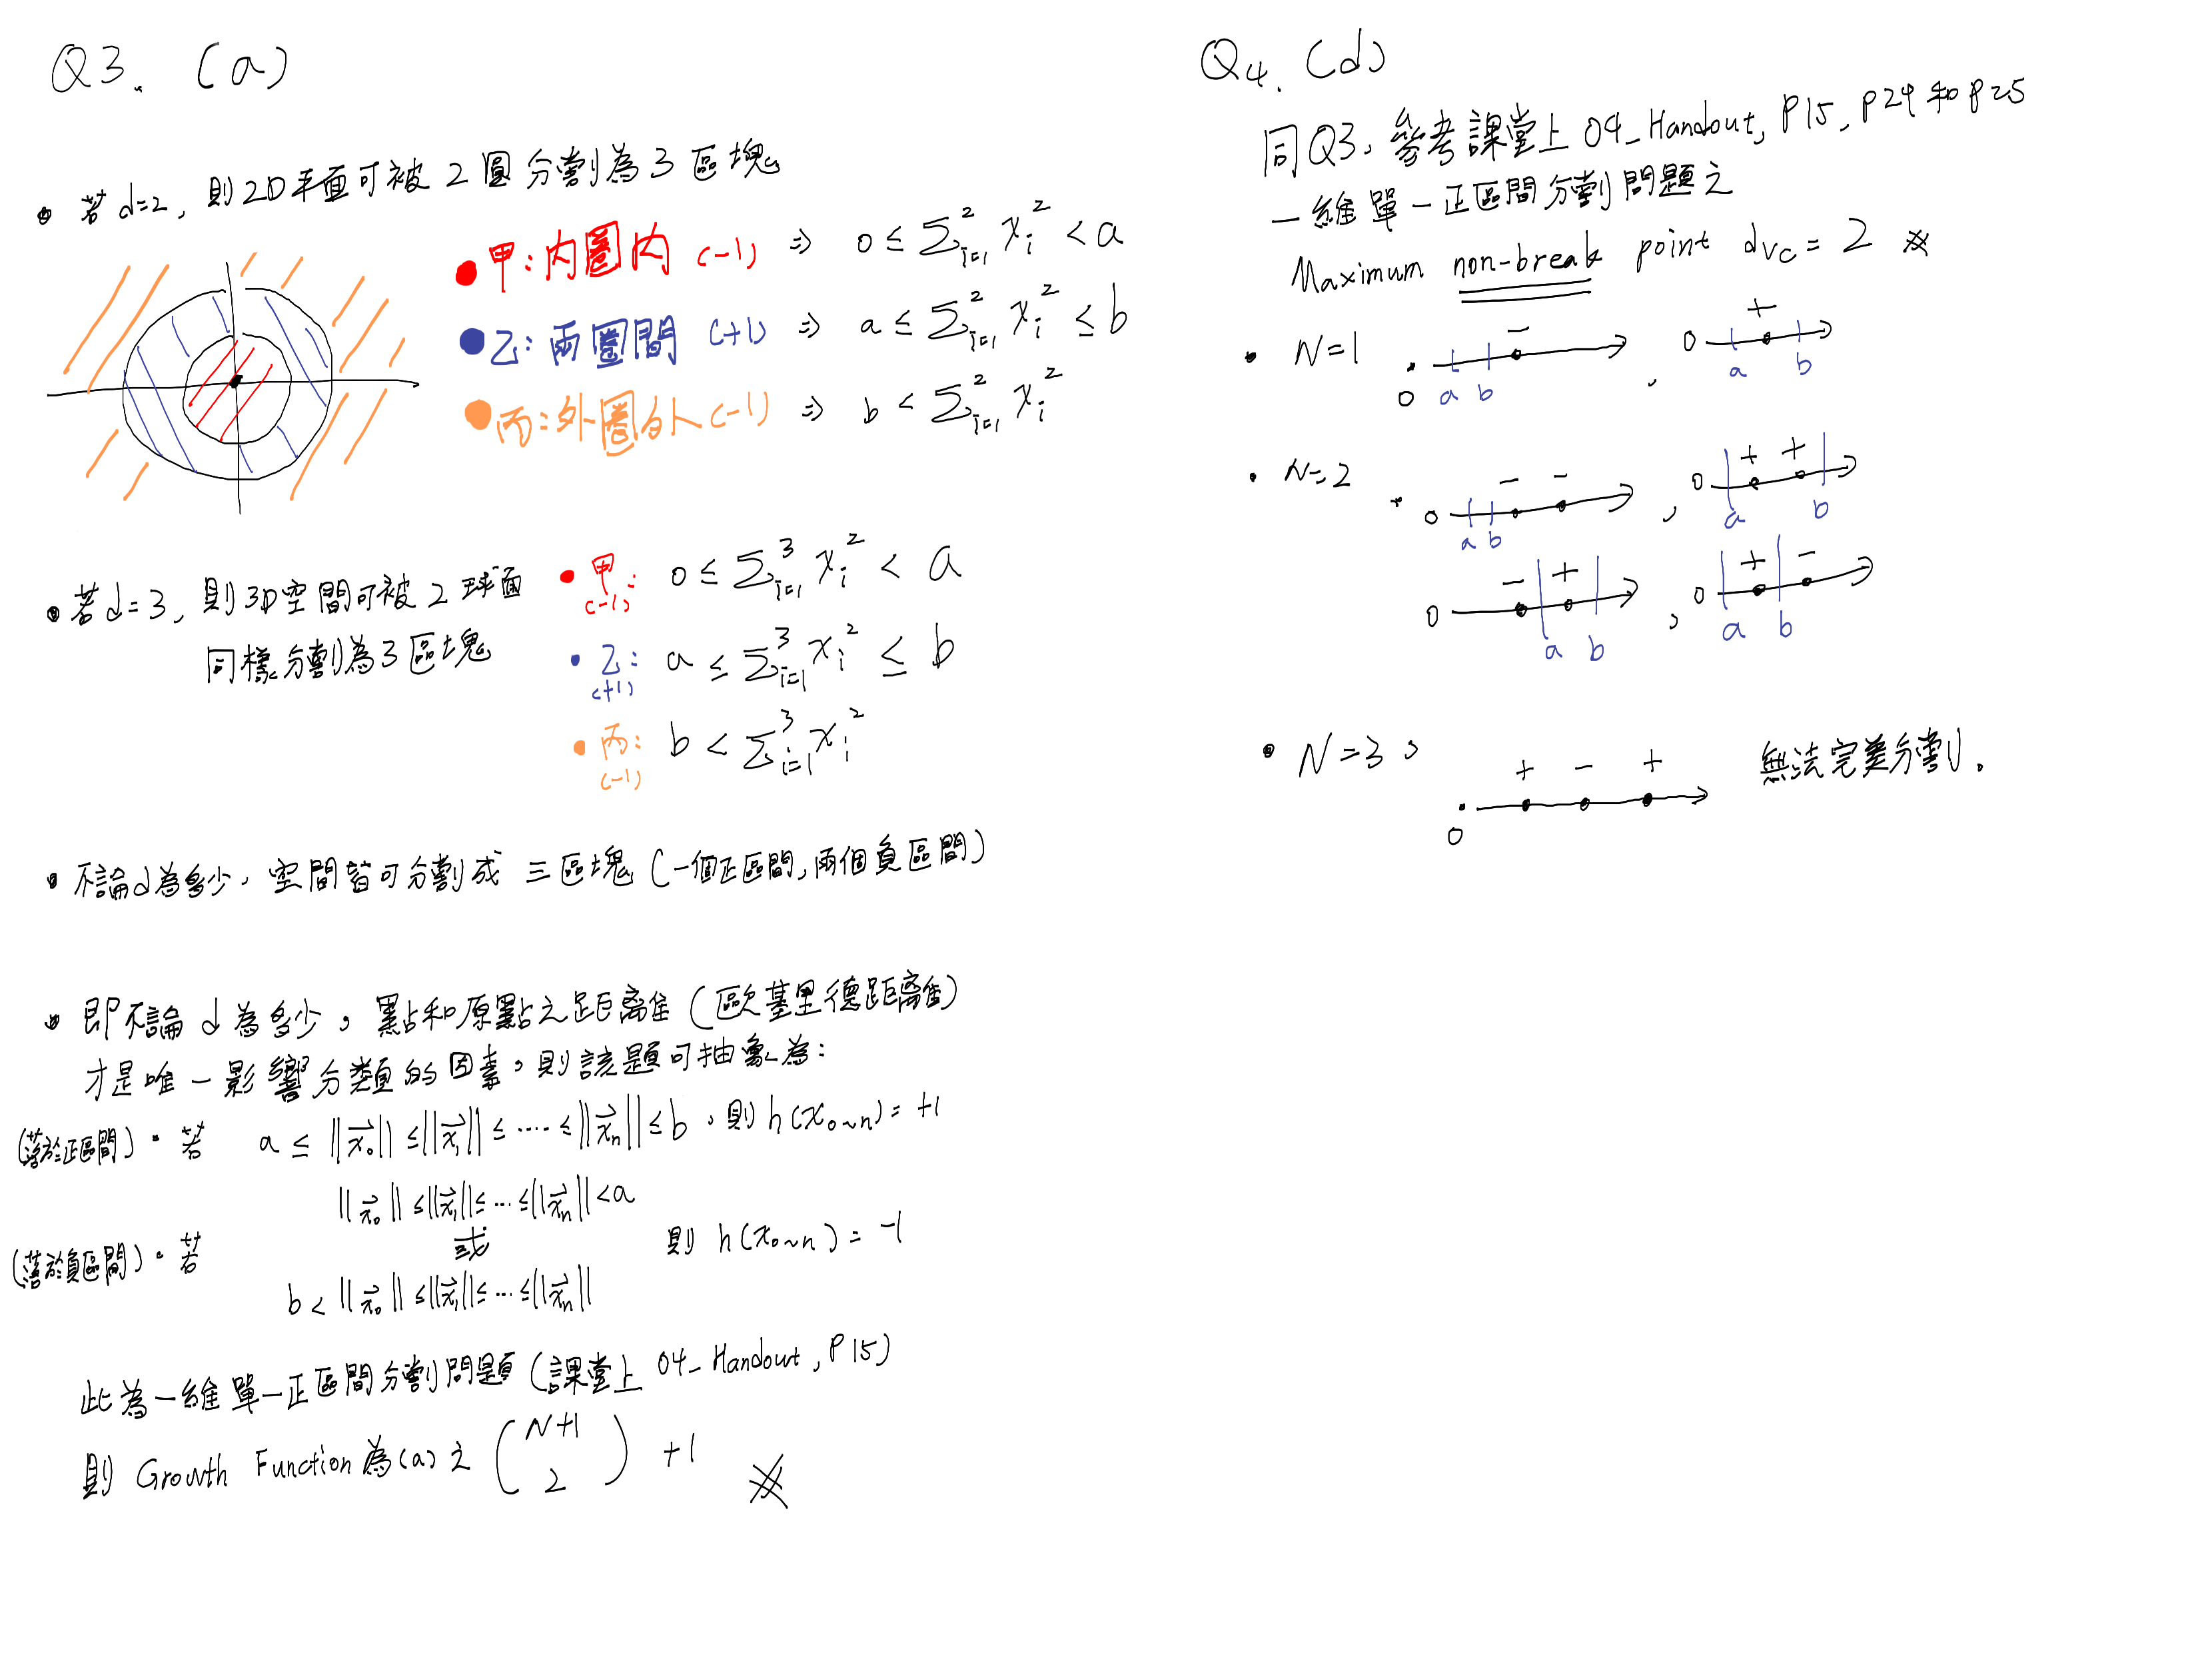 Q3. (a)
• 若 d=2, 則2D平面可被 2 圓分割為 3 區塊
• 甲:內圈內 (-1) ⇒ 0 ≤ Σ_{i=1}^{2} x_i^2 < a
• 乙:兩圈間 (+1) ⇒ a ≤ Σ_{i=1}^{2} x_i^2 ≤ b
• 丙:外圈外 (-1) ⇒ b < Σ_{i=1}^{2} x_i^2
• 若 d=3, 則3D空間可被 2 球面
同樣分割為 3 區塊
• 甲: 0 ≤ Σ_{i=1}^{3} x_i^2 < a
(-1)
• 乙: a ≤ Σ_{i=1}^{3} x_i^2 ≤ b
(+1)
• 丙: b < Σ_{i=1}^{3} x_i^2
(-1)
• 不論d為多少, 空間皆可分割成 三區塊 (一個正區間,兩個負區間)
• 即不論 d 為多少, 點和原點之距離 (歐基里德距離)
才是唯一影響分類的因素,則該題可抽象為:
(落於正區間) • 若 a ≤ ||x⃗_0|| ≤ ||x⃗_1|| ≤ .... ≤ ||x⃗_n|| ≤ b, 則 h(x_{0~n}) = +1
||x⃗_0|| ≤ ||x⃗_1|| ≤ ... ≤ ||x⃗_n|| < a
(落於負區間) • 若 或 則 h(x_{0~n}) = -1
b < ||x⃗_0|| ≤ ||x⃗_1|| ≤ ... ≤ ||x⃗_n||
此為一維單一正區間分割問題 (課堂上 04_Handout, P15)
則 Growth Function 為(a)之 (N+1 2) + 1 ※
Q4. (d)
同Q3, 參考課堂上 04_Handout, P15, P24 和 P25
一維單一正區間分割問題之
Maximum non-break point d_{VC} = 2 ※
• N=1
-
0 a b
,
+
0 a b
• N=2
- -
0 a b
,
+ +
0 a b
- +
0 a b
,
+ -
0 a b
• N=3,
+ - +
0
無法完美分割.